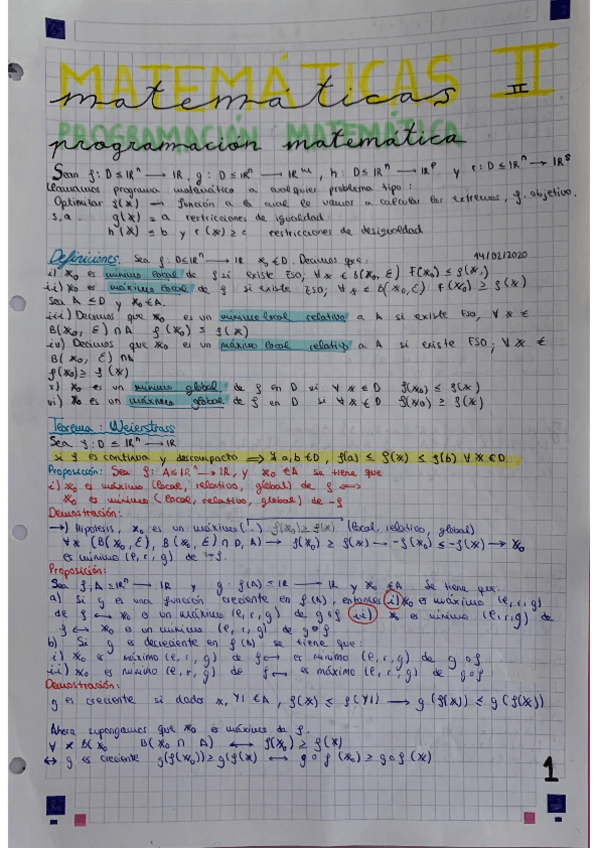 MATEMÁTICAS II
matemáticas II
PROGRAMACIÓN MATEMÁTICA
programación matemática
Sean f: D ⊆ ℝⁿ → ℝ, g: D ⊆ ℝⁿ → ℝᵐ, h: D ⊆ ℝⁿ → ℝᵖ y r: D ⊆ ℝⁿ → ℝˢ
Llamamos programa matemático a cualquier problema tipo:
Optimitar f(x) → función a la cual le vamos a calcular los extremos, f. objetivo.
s.a. g(x) = a restricciones de igualdad
h(x) ≤ b y r(x) ≥ c restricciones de desigualdad
Definiciones. Sea f: D ⊆ ℝⁿ → ℝ x₀ ∈ D. Decimos que: 14/02/2020
i) x₀ es mínimo local de f si existe ε>0, ∀ x ∈ B(x₀, ε) f(x₀) ≤ f(x)
ii) x₀ es máximo local de f si existe ε>0; ∀ x ∈ B(x₀, ε) f(x₀) ≥ f(x)
Sea A ⊆ D y x₀ ∈ A.
iii) Decimos que x₀ es un mínimo local relativo a A si existe ε>0, ∀ x ∈
B(x₀, ε) ∩ A f(x₀) ≤ f(x)
iv) Decimos que x₀ es un máximo local relativo a A si existe ε>0; ∀ x ∈
B(x₀, ε) ∩ A
f(x₀) ≥ f(x)
v) x₀ es un mínimo global de f en D si ∀ x ∈ D f(x₀) ≤ f(x)
vi) x₀ es un máximo global de f en D si ∀ x ∈ D f(x₀) ≥ f(x)
Teorema: Weierstrass
Sea f: D ⊆ ℝⁿ → ℝ
si f es continua y descompacto ⟹ ∃ a, b ∈ D, f(a) ≤ f(x) ≤ f(b) ∀ x ∈ D
Proposición: Sea f: A ⊆ ℝⁿ → ℝ, y x₀ ∈ A se tiene que
i) x₀ es máximo (local, relativo, global) de f ⟺
x₀ es mínimo (local, relativo, global) de -f
Demostración:
→) Hipotesis, x₀ es un máximo (...) f(x₀) ≥ f(x) (local, relativo, global)
∀ x (B(x₀, ε), B(x₀, ε) ∩ D, A) → f(x₀) ≥ f(x) → -f(x₀) ≤ -f(x) → x₀
es mínimo (l, r, g) de -f.
Proposición:
Sea f: A ⊆ ℝⁿ → ℝ y g: f(A) ⊆ ℝ → ℝ y x₀ ∈ A Se tiene que:
a) Si g es una función creciente en f(A), entonces i) x₀ es máximo (l, r, g)
de f ⟷ x₀ es un máximo (l, r, g) de g∘f ii) x₀ es mínimo (l, r, g) de
f ⟷ x₀ es un mínimo (l, r, g) de g∘f
b) Si g es decreciente en f(A) se tiene que:
i) x₀ es máximo (l, r, g) de f ⟷ es mínimo (l, r, g) de g∘f
ii) x₀ es mínimo (l, r, g) de f ⟷ es máximo (l, r, g) de g∘f
Demostración:
g es creciente si dados x, y ∈ A, f(x) ≤ f(y) → g(f(x)) ≤ g(f(x))
Ahora supongamos que x₀ es máximo de f.
∀ x B(x₀ B(x₀ ∩ A) ⟷ f(x₀) ≥ f(x)
⟷ g es creciente g(f(x₀)) ≥ g(f(x) ⟷ g∘f(x₀) ≥ g∘f(x)
1